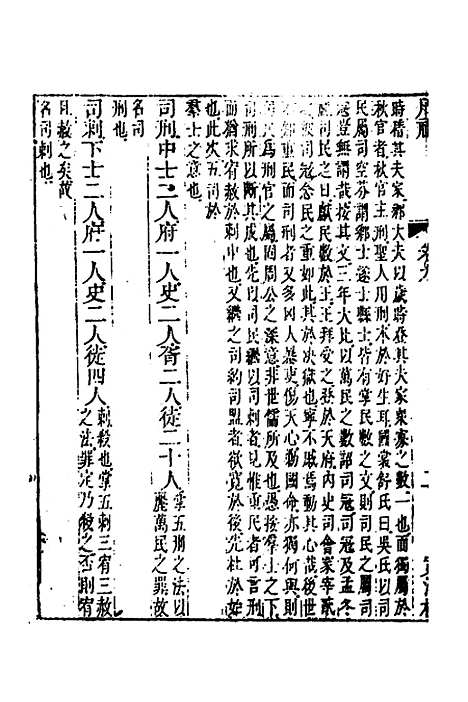 周禮
卷九
二
時稽其夫家鄉大夫以歲時登其夫家衆寡之數一也而獨屬於
秋官者秋官主刑聖人用刑本於好生耳國裳舒氏曰吳氏以司
民屬司空芬謂鄉士遂士縣士皆有掌民數之文則司民之屬司
冦豈無謂哉按其文三年大比以萬民之數詔司冦司冦及孟冬
祀司民之日獻民數於王王拜受之登於天府內史司會冢宰貳
之夫以司冦念民之數如此其於决獄也寧不戚焉動其心哉後世
不知重民而司刑者又多囚人暴吏傷天心勤國命亦獨何與則
司民爲刑官之屬固周公之深意非世儒所及也愚按羣士之下
司刑所以斷其成也先以司民繼以司刺者見惟重民者可言刑
而猶求宥赦於刺中也又繼之司約司盟者欲寬於後先杜於始
也此次五司於
羣士之意也
司刑中士二人府一人史二人胥二人徒二十人 掌五刑之法以
麗萬民之罪故
名司
刑也
司刺下士二人府一人史二人徒四人 刺殺也掌五刺三宥三赦
之法罪定乃殺之否則宥
且赦之矣黃
名司刺也